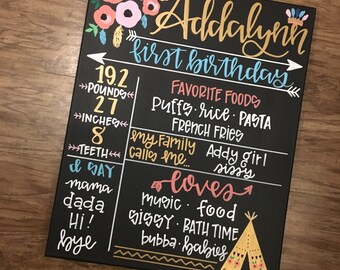 Addalynn
first birthday
19.2
POUNDS
27
INCHES
8
TEETH
FAVORITE FOODS
Puffs · rice · PASTA
FRENCH FRIES
my family
calls me...
Addy girl
sissy
I SAY
mama
dada
Hi!
bye
loves
music · food
SISSY · BATH TIME
bubba · babies